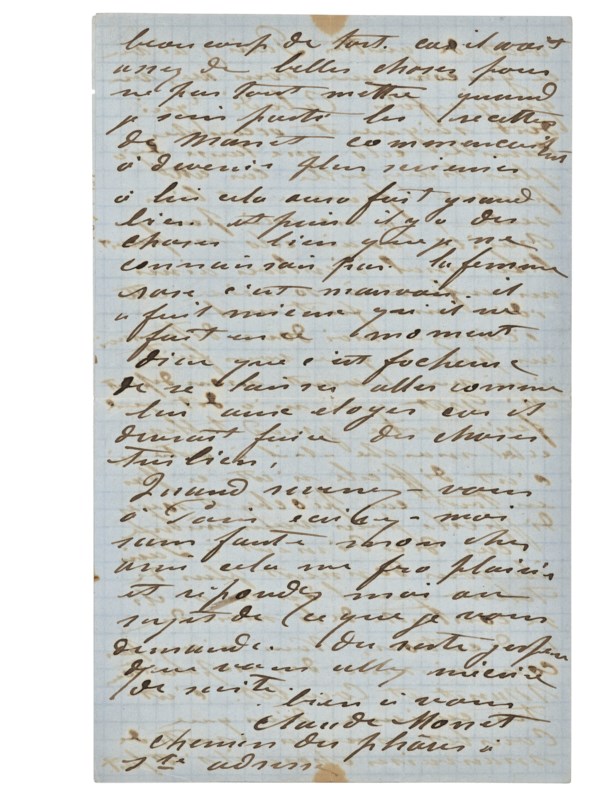 beaucoup de tort. car il avait
assez de belles choses pour
ne pas tout mettre quand
je suis parti les recettes
de Manet commencaient
à devenir plus
à lui cela aura fait grand
bien. et puis il y a des
choses bien que je ne
connaissais pas. la femme
rose c'est mauvais. il
a fait mieux qu'il ne
fait en ce moment
dieu que c'est facheux
de se laisser aller comme
lui aux eloges car il
devrait faire des choses
très bien.
Quand revenez-vous
à Paris écrivez-moi
sans faute mon cher
ami cela me fra plaisir
et répondez moi au
sujet de ce que je vous
demande. Du reste
que vous allez m'écrire
de suite.
bien à vous
Claude Monet
chemin des phares à
Ste adresse